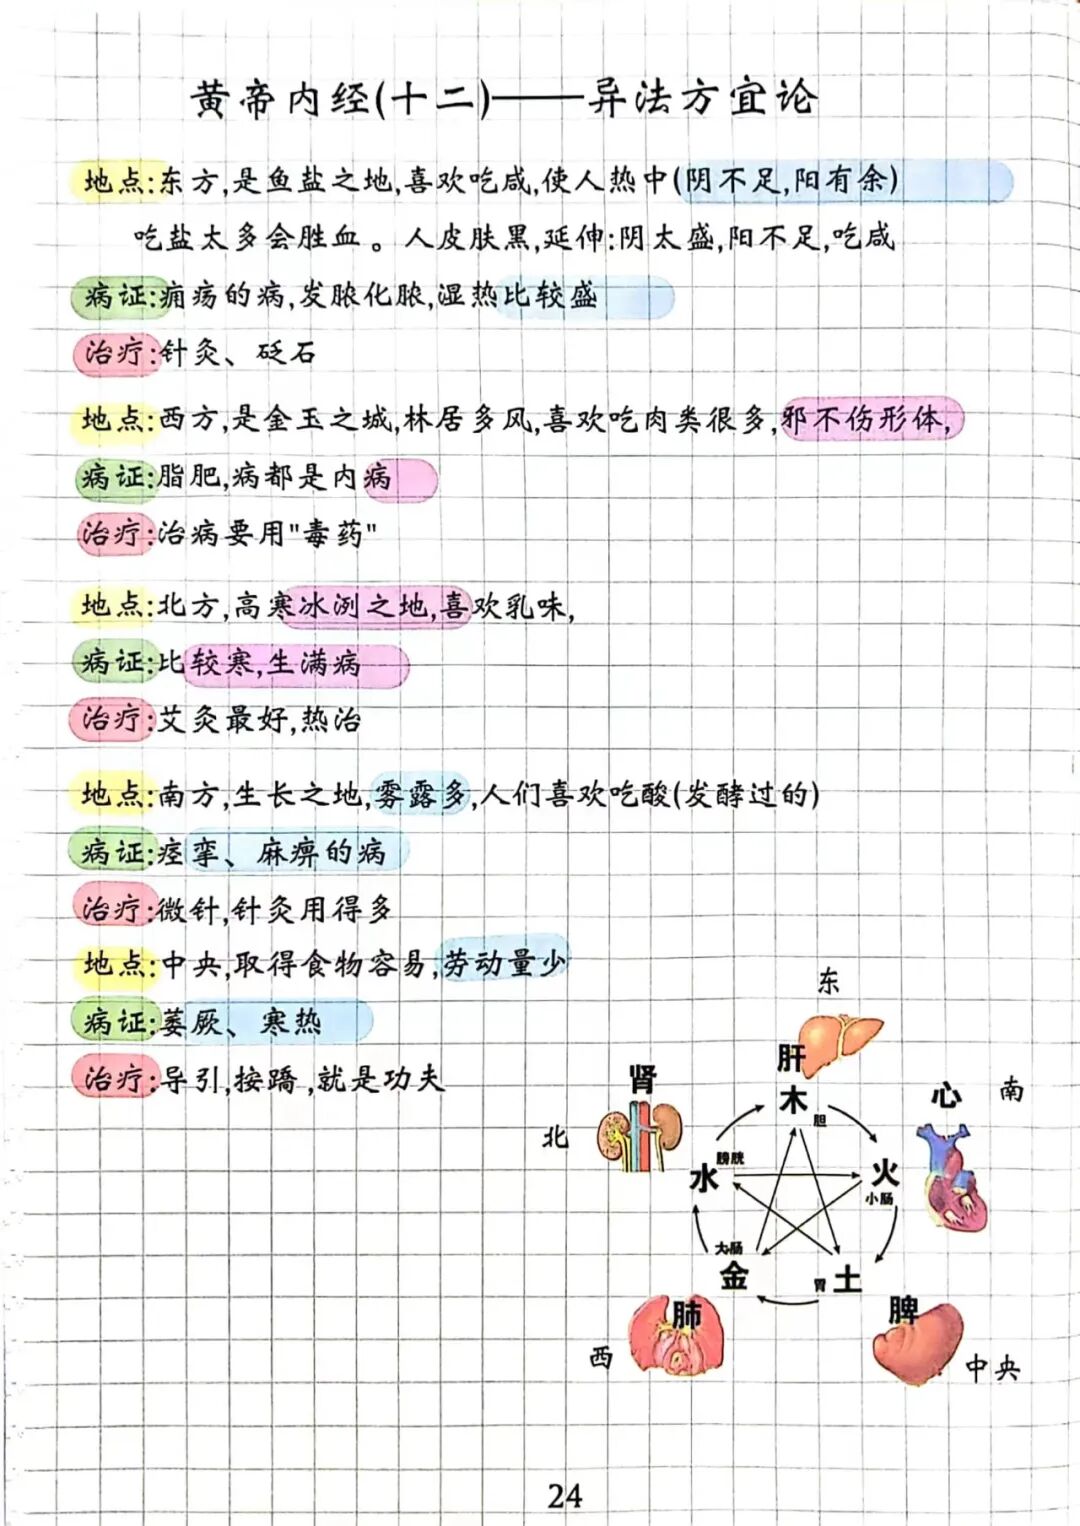 黄帝内经(十二)——异法方宜论
地点:东方,是鱼盐之地,喜欢吃咸,使人热中(阴不足,阳有余)
吃盐太多会胜血。人皮肤黑,延伸:阴太盛,阳不足,吃咸
病证:痈疡的病,发脓化脓,湿热比较盛
治疗:针灸、砭石
地点:西方,是金玉之城,林居多风,喜欢吃肉类很多,邪不伤形体,
病证:脂肥,病都是内病
治疗:治病要用"毒药"
地点:北方,高寒冰冽之地,喜欢乳味,
病证:比较寒,生满病
治疗:艾灸最好,热治
地点:南方,生长之地,雾露多,人们喜欢吃酸(发酵过的)
病证:痉挛、麻痹的病
治疗:微针,针灸用得多
地点:中央,取得食物容易,劳动量少
病证:萎厥、寒热
治疗:导引,按蹻,就是功夫
东
肝
木
胆
肾
北
心
南
水
膀胱
火
小肠
大肠
金
胃
土
肺
西
脾
中央
24